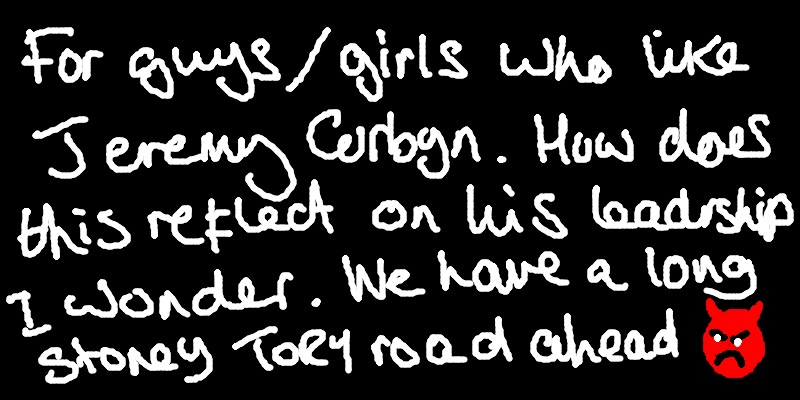 For guys/girls who like
Jeremy Corbyn. How does
this reflect on his leadrship
I wonder. We have a long
stoney TORY road ahead